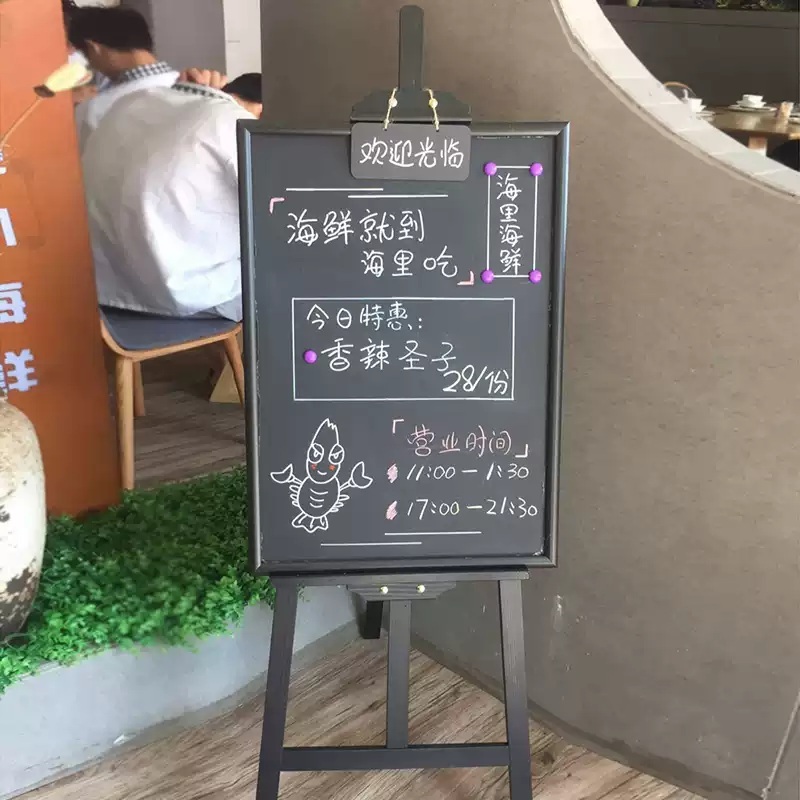 欢迎光临
海里海鲜
「海鲜就到
海里吃」
今日特惠:
香辣圣子
28/份
「营业时间」
11:00－1:30
17:00－21:30